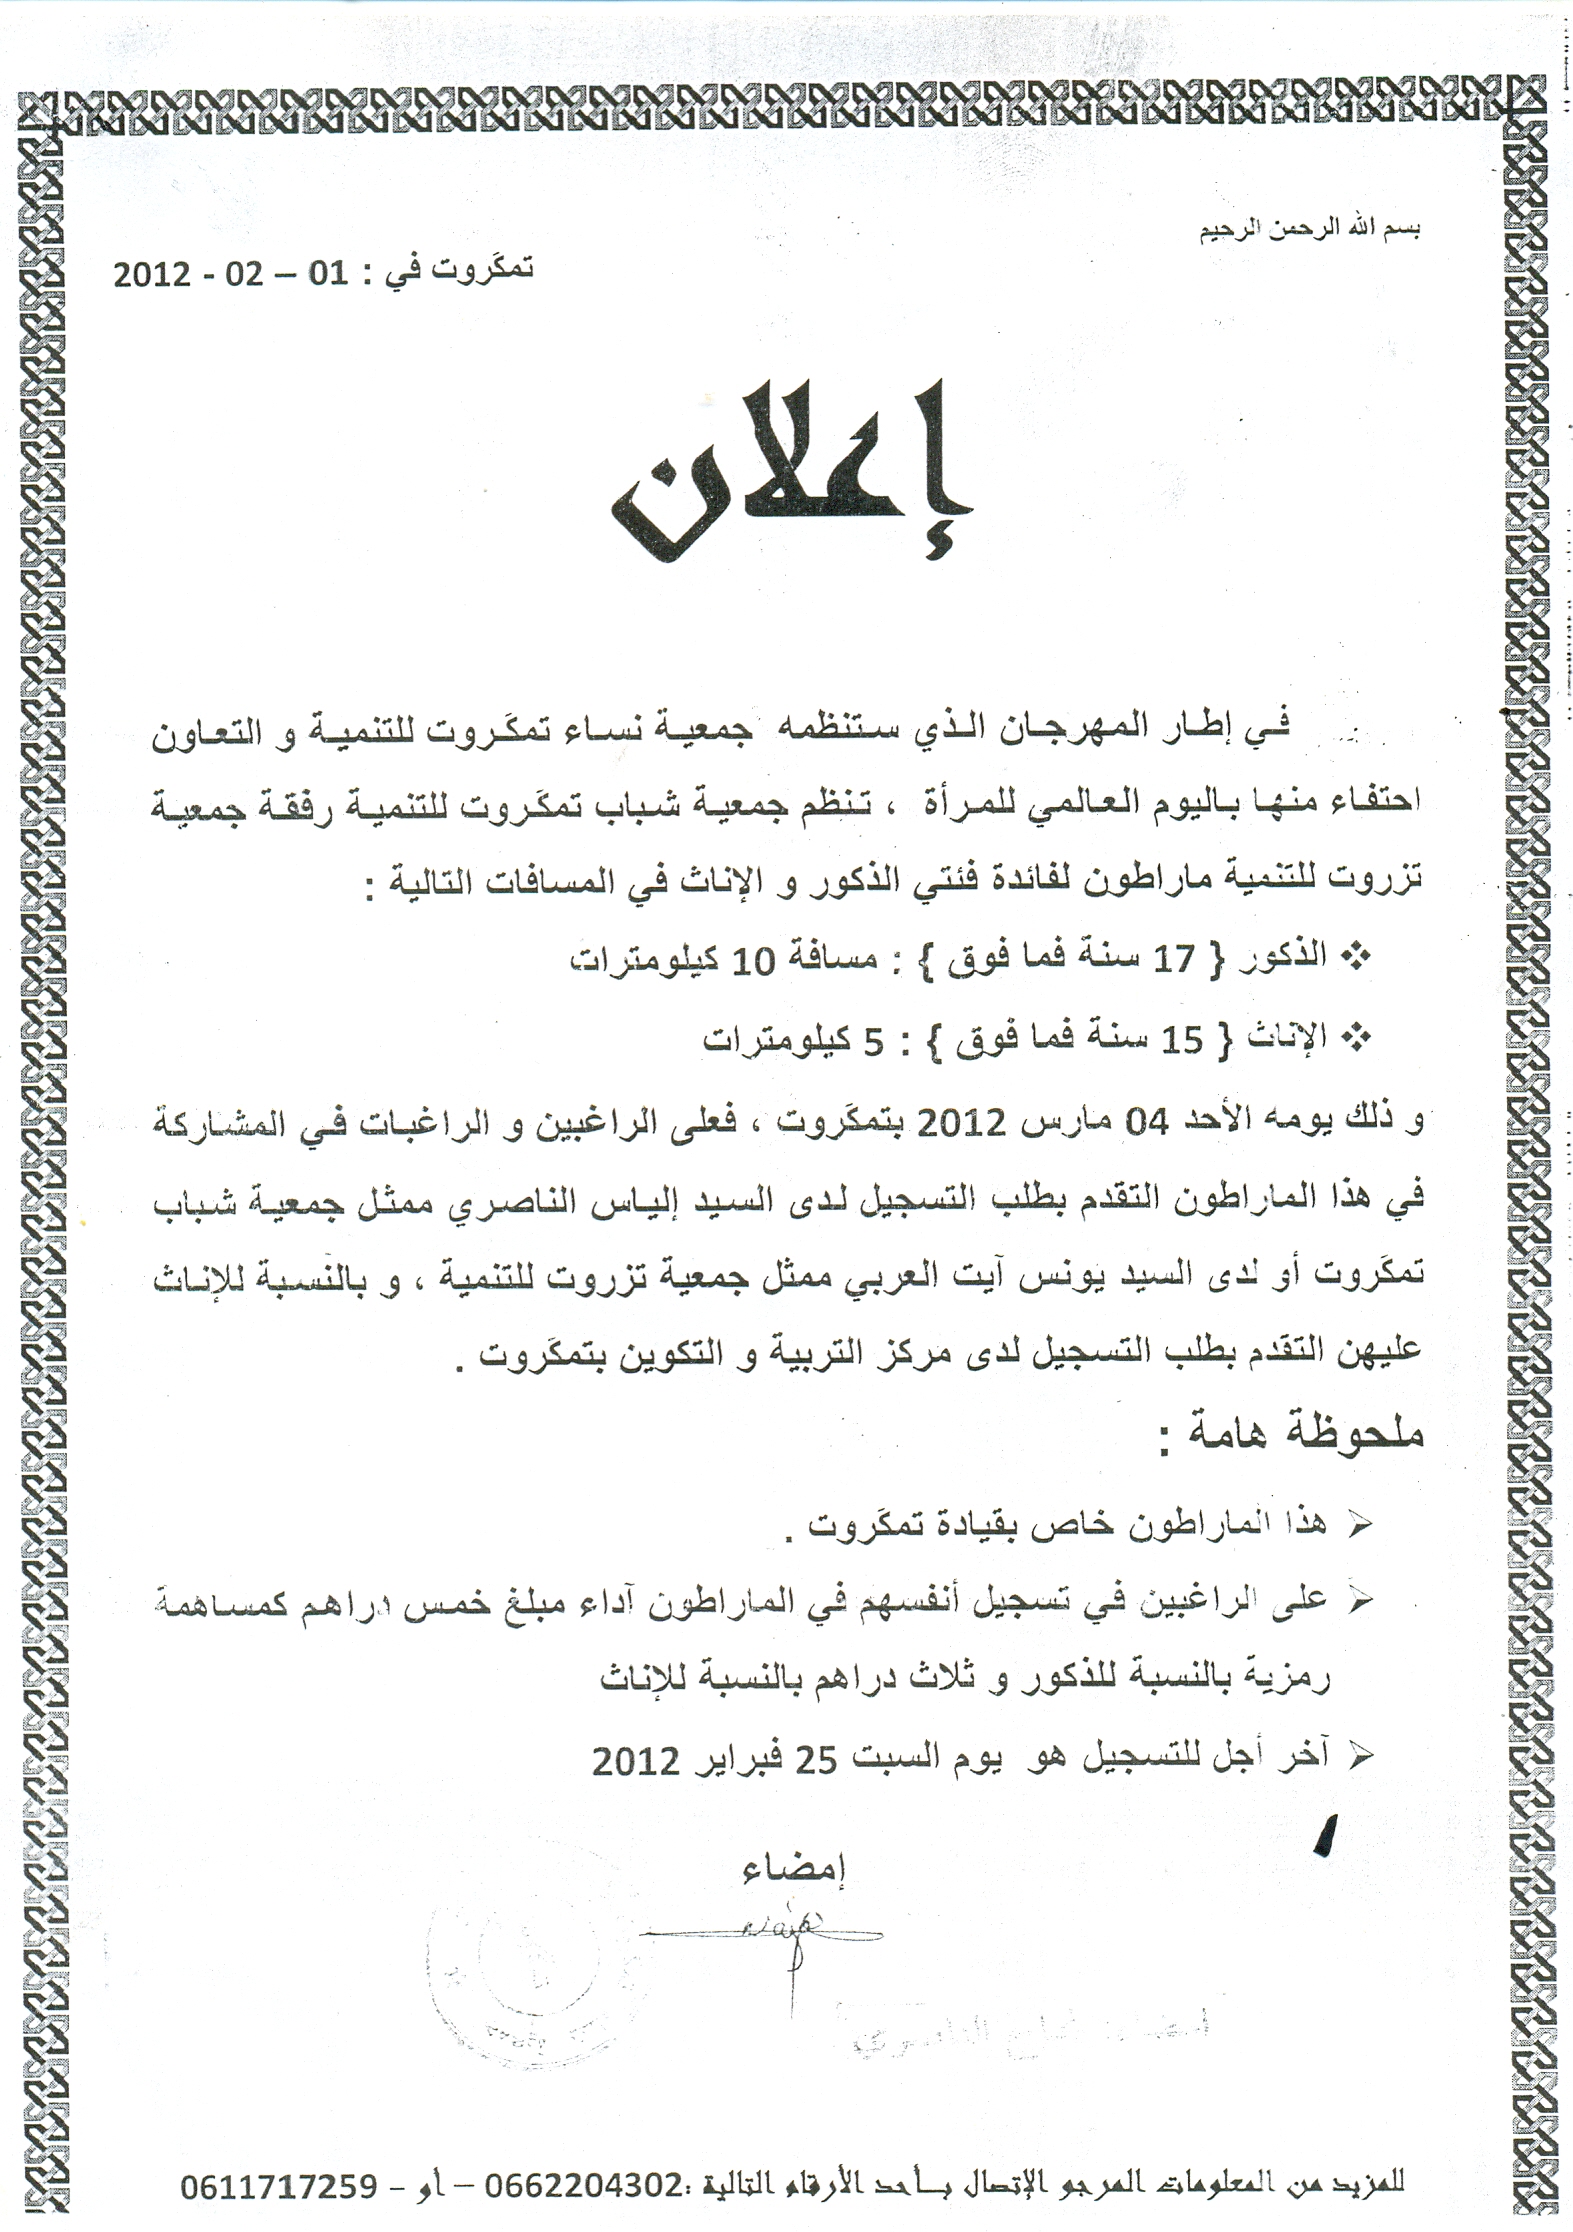 بسم الله الرحمن الرحيم
تمكَروت في : 01 – 02 - 2012
إعلان
في إطار المهرجان الذي ستنظمه جمعية نساء تمكَروت للتنمية و التعاون
احتفاء منها باليوم العالمي للمرأة ، تنظم جمعية شباب تمكَروت للتنمية رفقة جمعية
تزروت للتنمية ماراطون لفائدة فئتي الذكور و الإناث في المسافات التالية :
❖ الذكور { 17 سنة فما فوق } : مسافة 10 كيلومترات
❖ الإناث { 15 سنة فما فوق } : 5 كيلومترات
و ذلك يومه الأحد 04 مارس 2012 بتمكَروت ، فعلى الراغبين و الراغبات في المشاركة
في هذا الماراطون التقدم بطلب التسجيل لدى السيد إلياس الناصري ممثل جمعية شباب
تمكَروت أو لدى السيد يونس آيت العربي ممثل جمعية تزروت للتنمية ، و بالنسبة للإناث
عليهن التقدم بطلب التسجيل لدى مركز التربية و التكوين بتمكَروت .
ملحوظة هامة :
➢ هذا الماراطون خاص بقيادة تمكَروت .
➢ على الراغبين في تسجيل أنفسهم في الماراطون آداء مبلغ خمس دراهم كمساهمة
رمزية بالنسبة للذكور و ثلاث دراهم بالنسبة للإناث
➢ آخر أجل للتسجيل هو يوم السبت 25 فبراير 2012
إمضاء
للمزيد من المعلومات المرجو الإتصال بأحد الأرقام التالية :0662204302 – أو – 0611717259